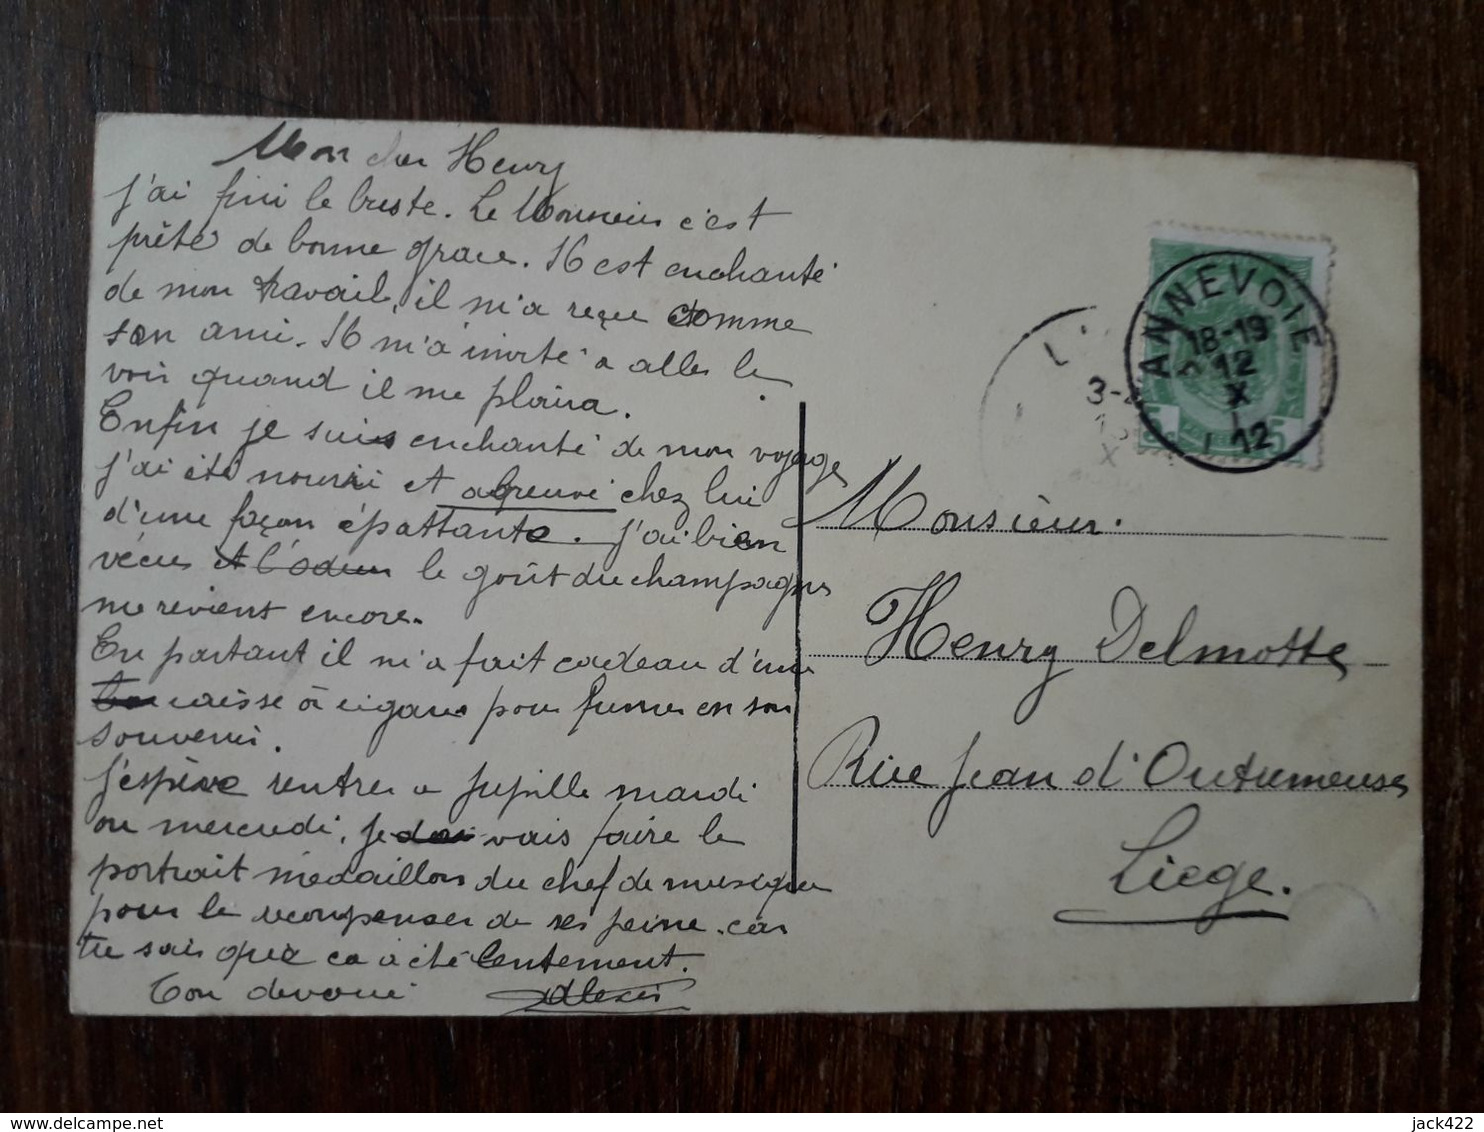 Mon cher Henry
J'ai fini le buste. Le Monsieur c'est
prêté de bonne grace. Il est enchanté
de mon travail, il m'a reçu comme
son ami. Il m'a invité a aller le
voir quand il me plaira.
Enfin je suis enchanté de mon voyage
j'ai été nourri et abreuvé chez lui
d'une façon épattante. J'ai bien
vécu et l'odeur le goût du champagne
me revient encore.
En partant il m'a fait cadeau d'une
caisse à cigares pour fumer en son
souvenir.
J'espère rentrer a Jupille mardi
ou mercredi, je vais faire le
portrait médaillon du chef de musique
pour le recompenser de ses peine. car
tu sais que ca a été lentement.
Ton devoué Alexis
ANNEVOIE
18-19
12
X
12
5 5
L
3-
X
Monsieur.
Henry Delmotte
Rue Jean d'Outremeuse
Liege.
delcampe.net
jack422